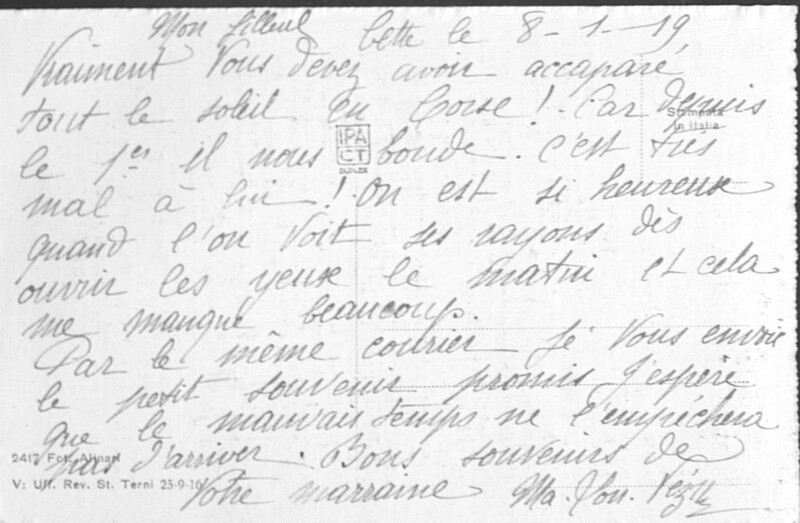 Mon filleul Cette le 8-1-19
Vraiment Vous devez avoir accaparé
tout le soleil en Corse! Car depuis
Stampata
in Italia
le 1er il nous boude. c'est très
IPA
CT
DUPLEX
mal à lui! On est si heureux
quand l'on voit ses rayons dès
ouvrir les yeux le matin et cela
me manque beaucoup.
Par le même courier je Vous envoie
le petit souvenir promis j'espère
que le mauvais temps ne l'empéchera
2417 Fot. Alinari
pas d'arriver. Bons souvenirs de
V: Uff. Rev. St. Terni 23-9-16
Votre marraine